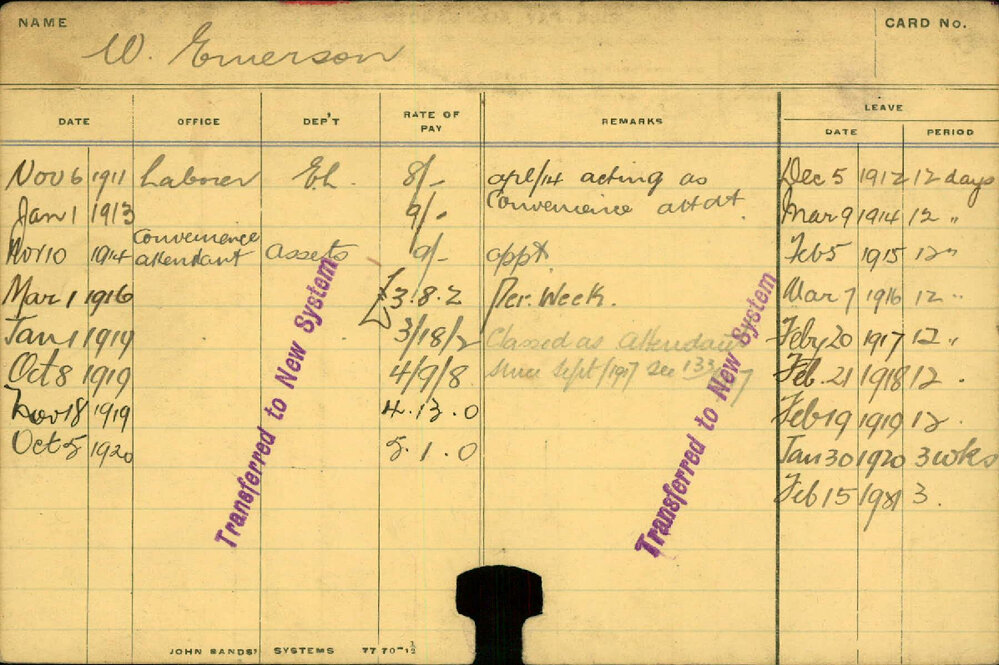 NAME W. Emerson CARD No.
DATE OFFICE DEP'T RATE OF PAY REMARKS LEAVE
DATE PERIOD
Nov 6 1911 Laborer E.L. 8/- apl/14 acting as Dec 5 1912 12 days
Jan 1 1913 9/- Convenience attdt. Mar 9 1914 12 "
Nov 10 1914 Convenience attendant assets 9/- appt. Feb 5 1915 12 "
Mar 1 1916 £3.8.2 Per. Week. Mar 7 1916 12 "
Jan 1 1919 3/18/2 Classed as Attendant Feby 20 1917 12 "
Oct 8 1919 4/9/8 since Sept/1917 see Feb. 21 1918 12 .
Nov 18 1919 4.13.0 Feb 19 1919 12 .
Oct 5 1920 5.1.0 Jan 30 1920 3 wks
Feb 15 1921 3.
Transferred to New System
Transferred to New System
JOHN SANDS' SYSTEMS 77 70-12